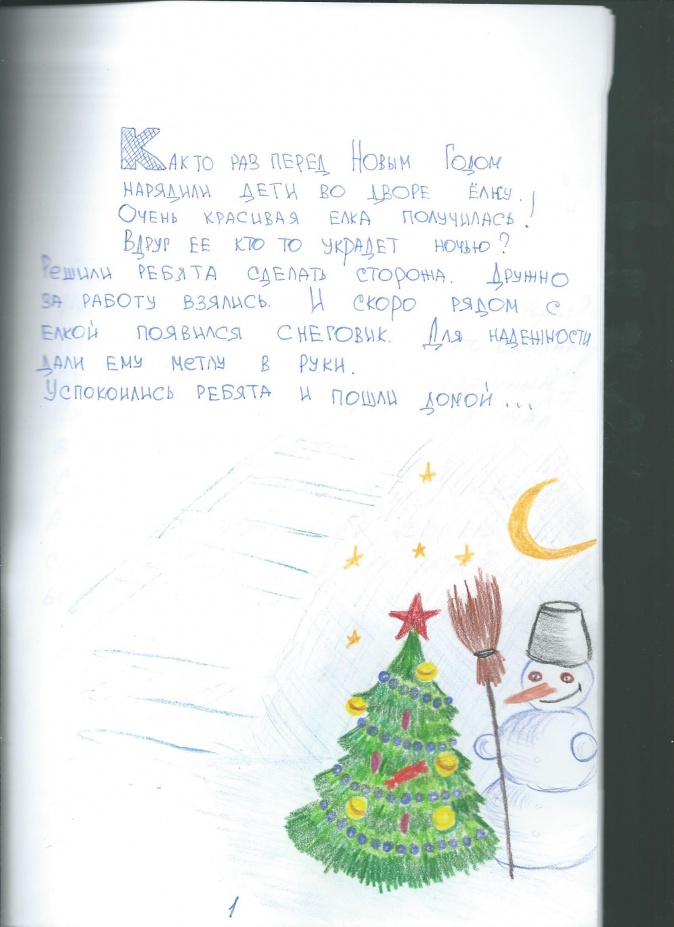 КАК ТО РАЗ ПЕРЕД НОВЫМ ГОДОМ
НАРЯДИЛИ ДЕТИ ВО ДВОРЕ ЁЛКУ.
ОЧЕНЬ КРАСИВАЯ ЕЛКА ПОЛУЧИЛАСЬ!
ВДРУГ ЕЕ КТО ТО УКРАДЕТ НОЧЬЮ?
РЕШИЛИ РЕБЯТА СДЕЛАТЬ СТОРОЖА. ДРУЖНО
ЗА РАБОТУ ВЗЯЛИСЬ. И СКОРО РЯДОМ С
ЕЛКОЙ ПОЯВИЛСЯ СНЕГОВИК. ДЛЯ НАДЕЖНОСТИ
ДАЛИ ЕМУ МЕТЛУ В РУКИ.
УСПОКОИЛИСЬ РЕБЯТА И ПОШЛИ ДОМОЙ...
1